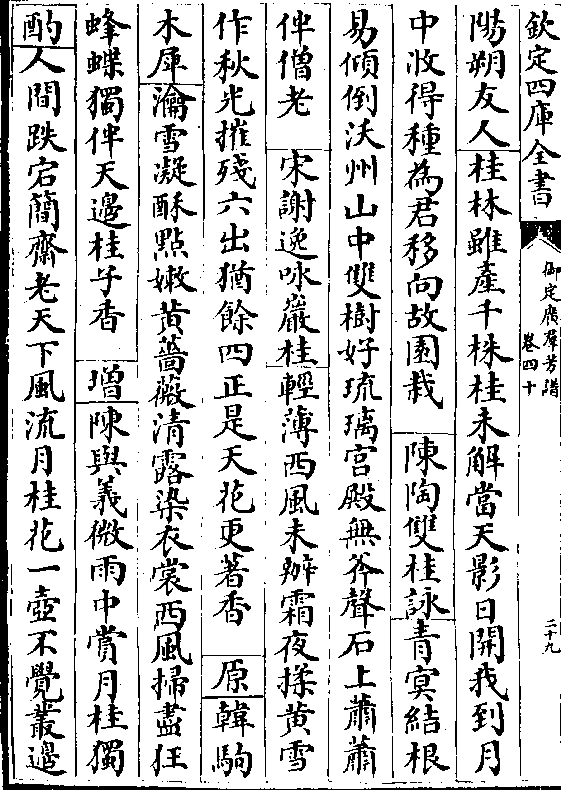 欽定四庫全書
御定廣羣芳譜
卷四十
二十九
陽朔友人桂林雖產千株桂未解當天影日開我到月
中收得種為君移向故園栽 陳陶雙桂詠青㝠結根
易傾倒沃州山中雙樹好琉璃宮殿無斧聲石上蕭蕭
伴僧老 宋謝逸咏巖桂輕薄西風未辦霜夜揉黄雪
作秋光摧殘六出猶餘四正是天花更著香 原韓駒
木犀瀹雪凝酥㸃嫩黄薔薇清露染衣裳西風掃盡狂
蜂蝶獨伴天邊桂子香 增陳與義微雨中賞月桂獨
酌人間跌宕蕳齋老天下風流月桂花一壺不覺叢邉